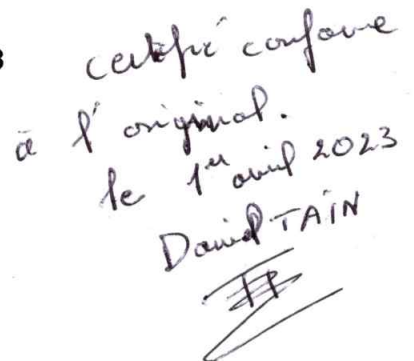 certifié conforme
à l'original.
le 1er avril 2023
David TAÏN